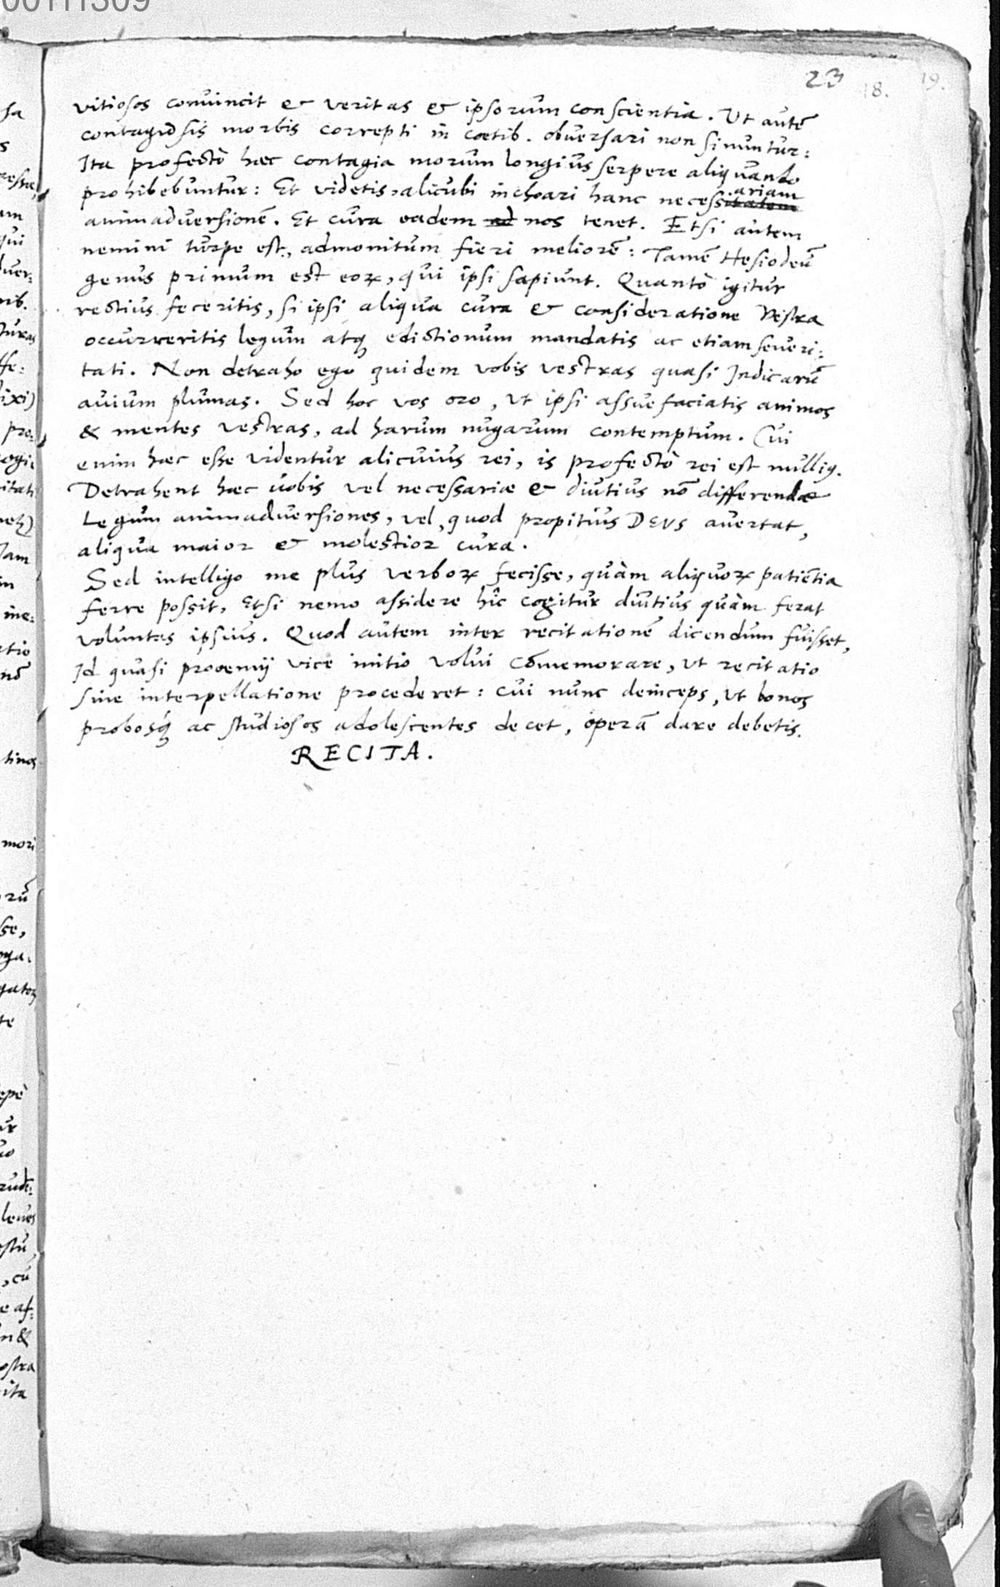 00111309
23 18. 19.
vitiosos convincit & veritas & ipsorum conscientia. Ut autē
contagiosis morbis correpti in cœtib. obversari non sinuntur:
Ita profectò hæc contagia morum longius serpere aliquando
prohibebuntur: Et videtis, alicubi inchoari hanc necessitatem
ariam
animadversionē. Et cura eadem ad nos tenet. Etsi autem
nemini turpe est, admonitum fieri meliorē: Tamē Hesiodeū
genus primum est eoꝝ, qui ipsi sapiunt. Quantò igitur
rectius feceritis, si ipsi aliqua cura & consideratione Vestra
occurreritis legum atq́ edictionum mandatis ac etiam severi:
tati. Non detraho ego quidem vobis vestras quasi Indicarū
avium plumas. Sed hoc vos oro, ut ipsi assuefaciatis animos
& mentes vestras, ad harum nugarum contemptum. Cui
enim hæc esse videntur alicuius rei, is profectò rei est nulliꝰ.
Detrahent hæc vobis vel necessariæ & diutius nō differendæ
Legum animadversiones, vel, quod propitius DEUS avertat,
aliqua maior & molestior cura.
Sed intelligo me plus verboꝝ fecisse, quàm aliquoꝝ patiētia
ferre possit, Etsi nemo assidere hîc cogitur diutius quàm ferat
voluntas ipsius. Quod autem inter recitationē dicendum fuisset,
Id quasi prooemij vice initio volui cōmemorare, ut recitatio
sine interpellatione procederet: cui nunc deinceps, ut bonos
probosq́ ac studiosos adolescentes decet, operā dare debetis.
RECITA.